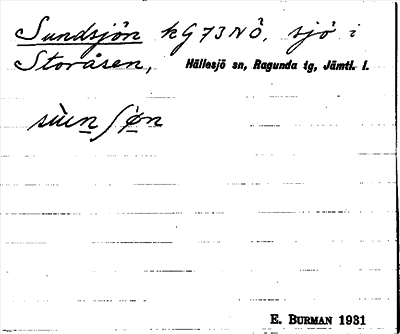 Sundsjön kG73NÖ. sjö i
Storåsen, Hällesjö sn, Ragunda tg, Jämtl. l.
E. BURMAN 1931